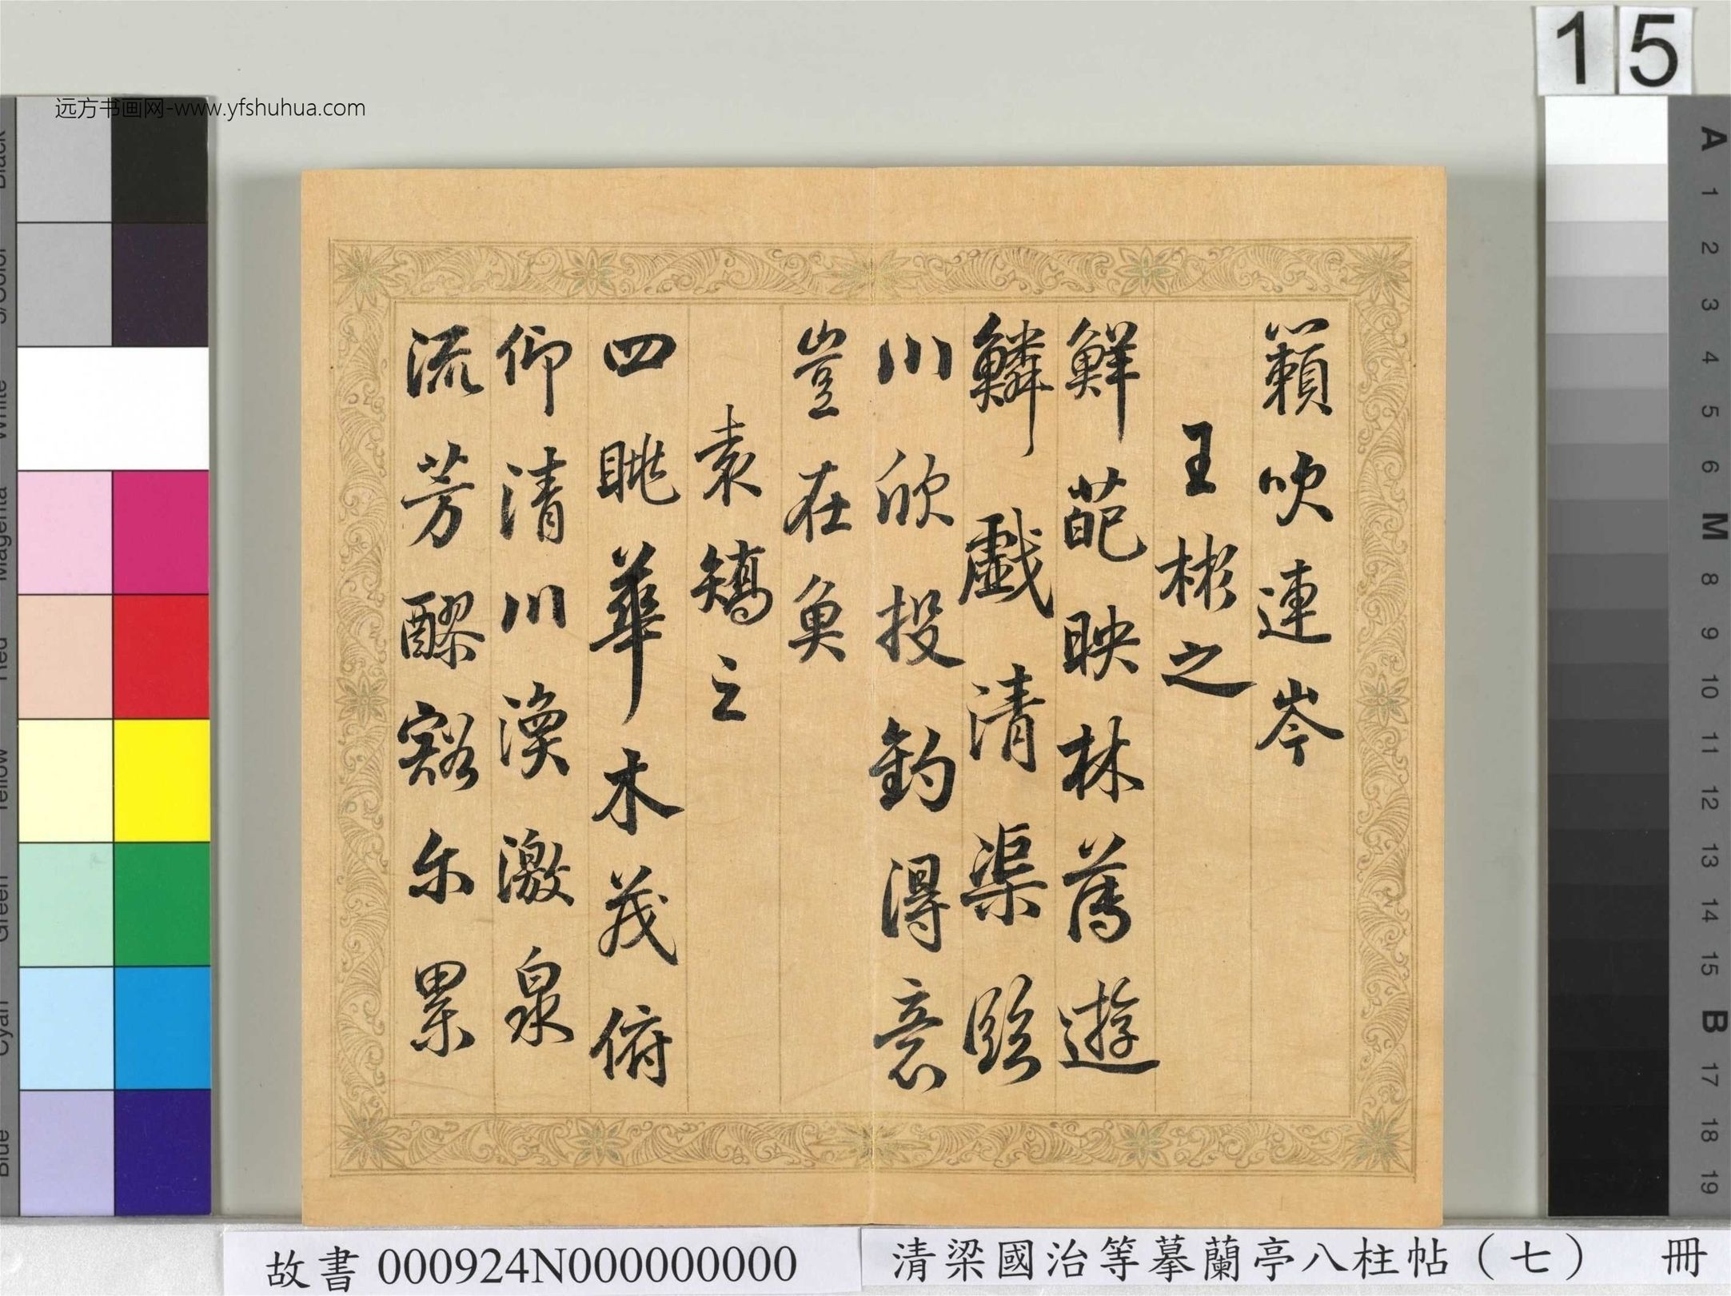 远方书画网-www.yfshuhua.com
15
籟吹連岑
王彬之
鮮葩映林薄遊
鱗戲清渠臨
川欣投釣得意
豈在魚
袁矯之
四眺華木茂俯
仰清川渙激泉
流芳醪豁尔累
故書 000924N000000000
清梁國治等摹蘭亭八柱帖（七） 冊
Black
3/Color
White
Magenta
Red
Yellow
Green
Cyan
Blue
A
1
2
3
4
5
6
M
8
9
10
11
12
13
14
15
B
17
18
19